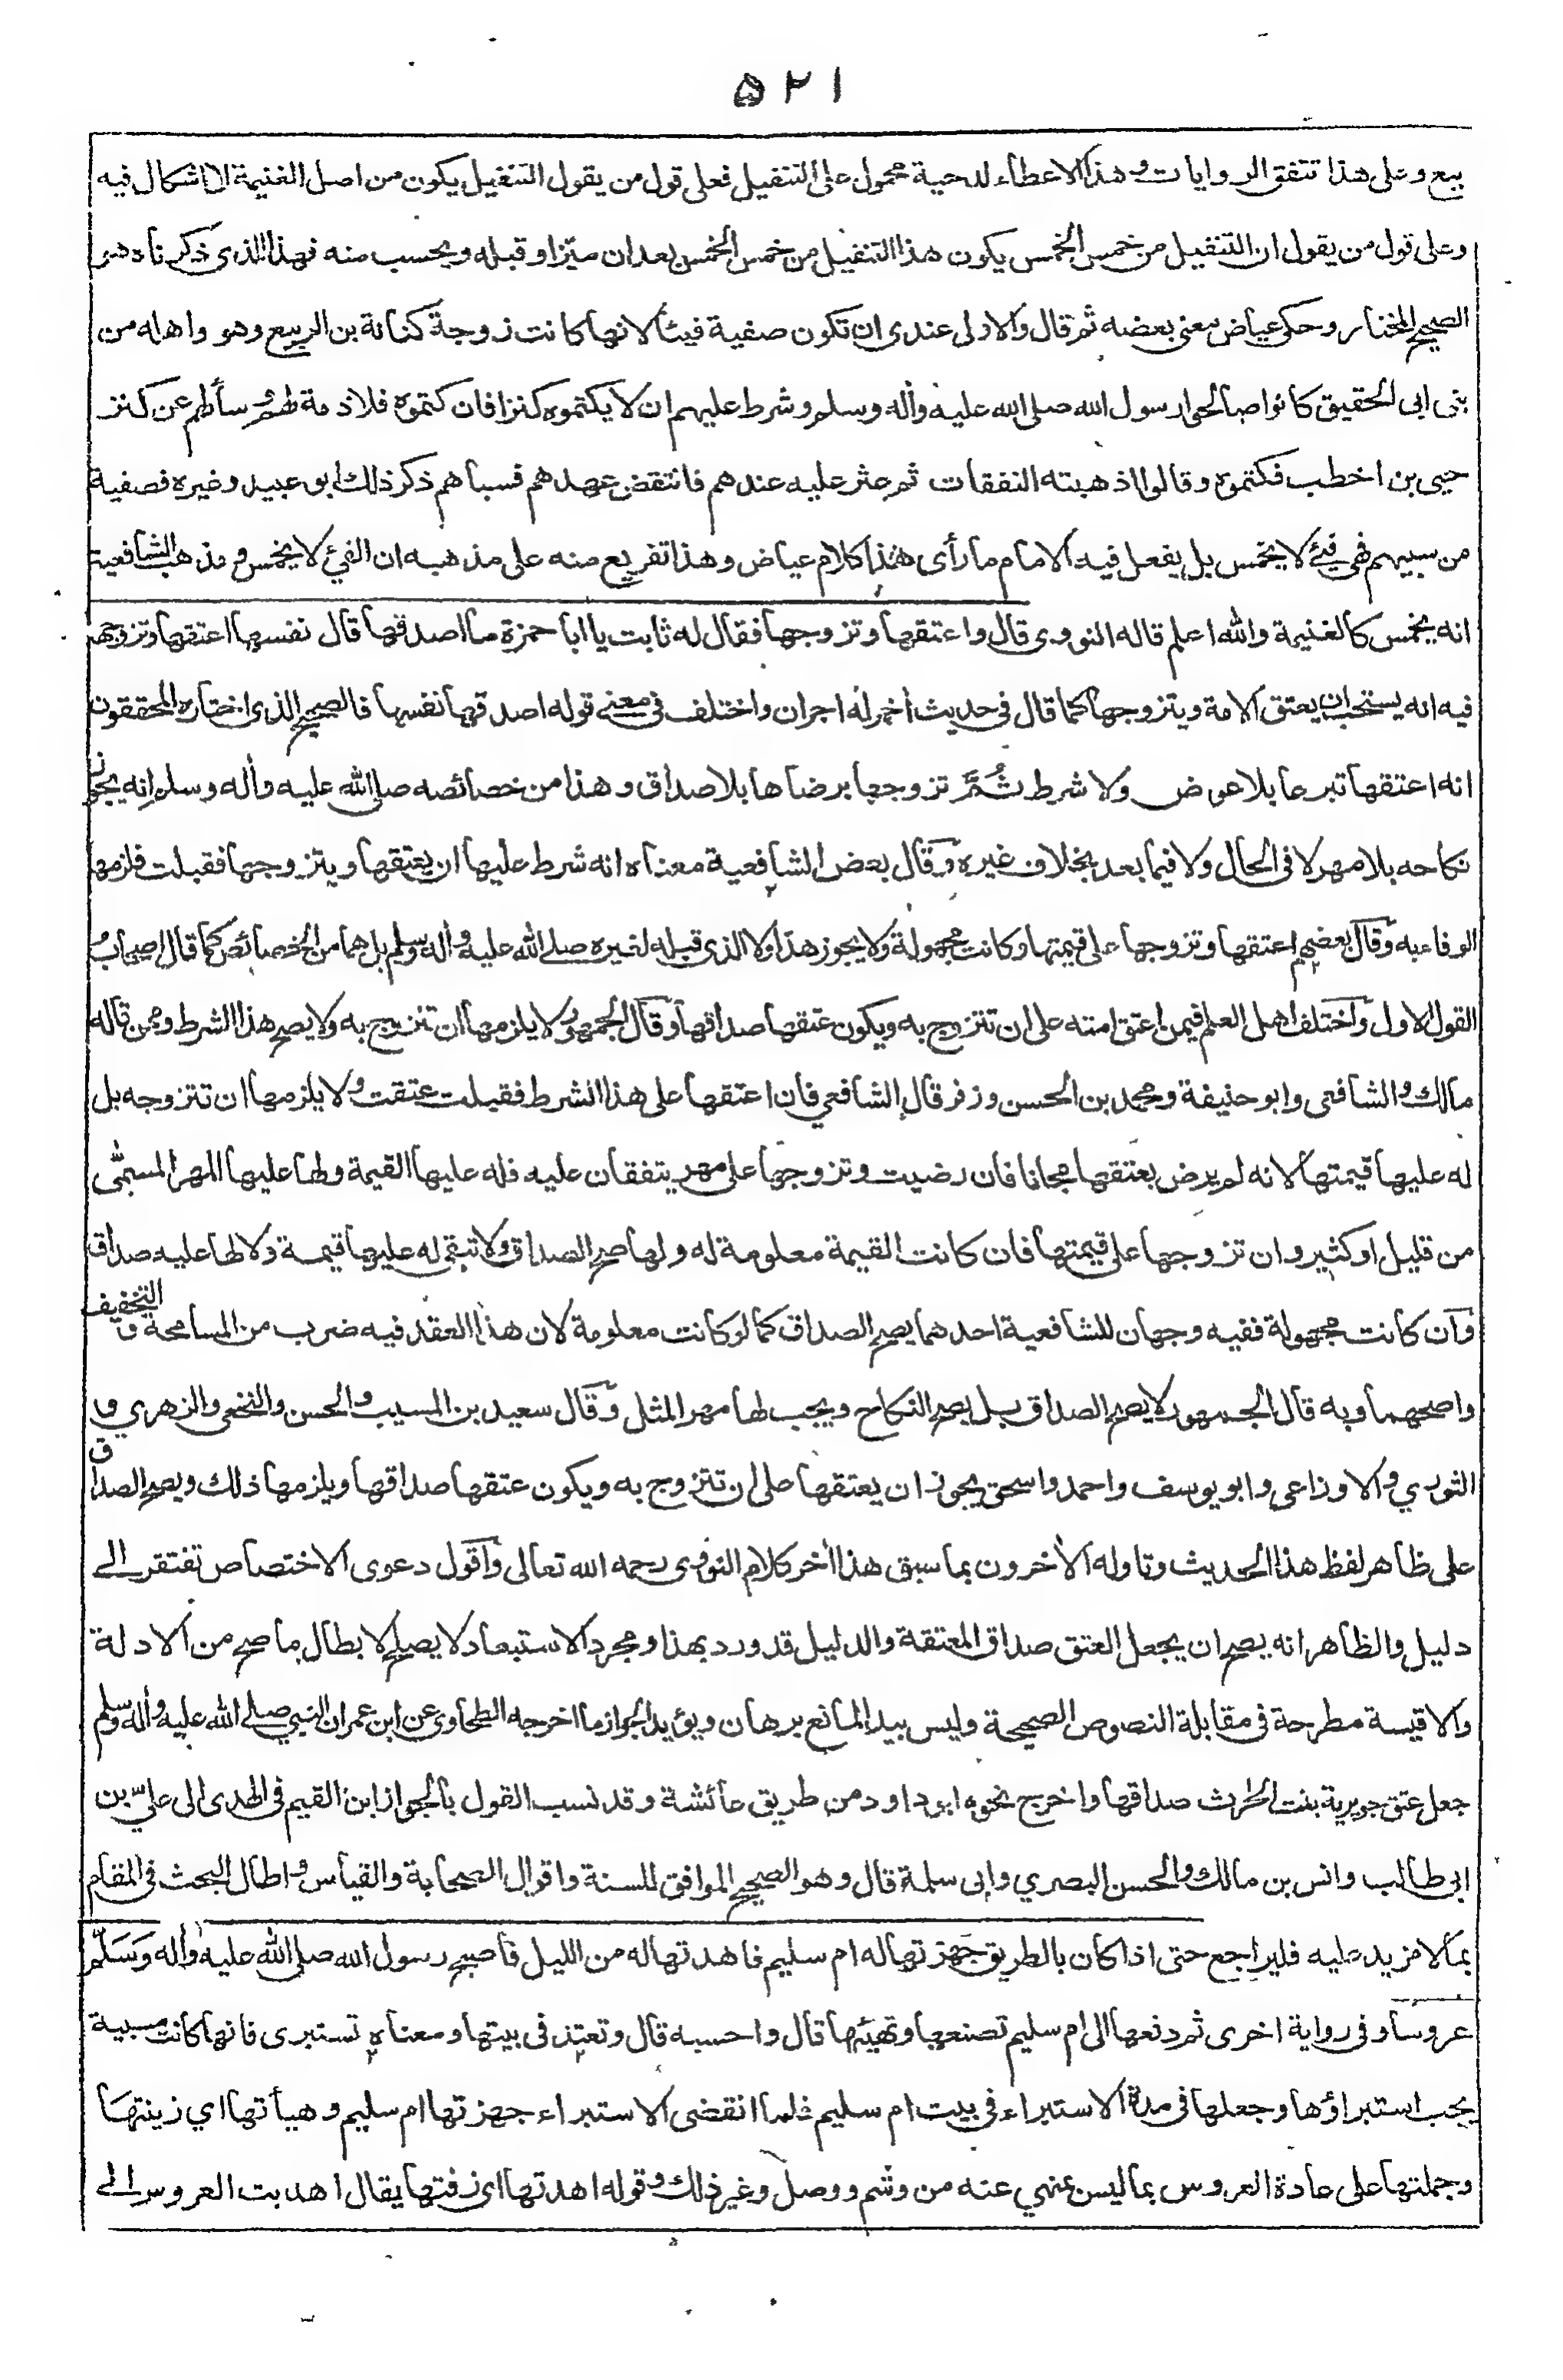 ٥٢١
بيع وعلى هذا تتفق الروايات وهذا الاعطاء لدحية محمول على التنفيل فعلى قول من يقول التنفيل يكون من اصل الغنيمة لا اشكال فيه
وعلى قول من يقول ان التنفيل من خمس الخمس يكون هذا التنفيل من خمس الخمس بعد ان ميّز او قبله ويحسب منه فهذا الذى ذكرناه هو
الصحيح المختار وحكى عياض معنى بعضه ثم قال والاولى عندى ان تكون صفية فيئا لانها كانت زوجة كنانة بن الربيع وهو واهله من
بنى ابى الحقيق كانوا صالحوا رسول الله صلى الله عليه وأله وسلم وشرط عليهم ان لا يكتموه كنزا فان كتموه فلا ذمة لهم وسألهم عن كنز
حيى بن اخطب فكتموه وقالوا اذهبته النفقات ثم عثر عليه عندهم فانتقض عهدهم فسباهم ذكر ذلك ابو عبيد وغيره فصفية
من سبيهم فهى فيئ لا يخمس بل يفعل فيه الامام ما رأى هذا كلام عياض وهذا تفريع منه على مذهبه ان الفيئ لا يخمس ومذهب الشافعية
انه يخمس كالغنيمة والله اعلم قاله النووى قال واعتقها وتزوجها فقال له ثابت يا ابا حمزة ما اصدقها قال نفسها اعتقها وتزوجها
فيه انه يستحب ان يعتق الامة ويتزوجها كما قال فى حديث أخر له اجران واختلف فى معنى قوله اصدقها نفسها فالصحيح الذى اختاره المحققون
انه اعتقها تبرعا بلا عوض ولا شرط ثُمَّ تزوجها برضاها بلا صداق وهذا من خصائصه صلى الله عليه وأله وسلم انه يجوز
نكاحه بلا مهر لا فى الحال ولا فيما بعد بخلاف غيره وقال بعض الشافعية معناه انه شرط عليها ان يعتقها ويتزوجها فقبلت فلزمها
الوفاء به وقال بعضهم اعتقها وتزوجها على قيمتها وكانت مجهولة ولا يجوز هذا ولا الذى قبله لغيره صلى الله عليه وأله وسلم بل هما من الخصائص كما قال اصحاب
القول الاول واختلف اهل العلم فيمن اعتق امته على ان تتزوج به ويكون عتقها صداقها وقال الجمهور لا يلزمها ان تتزوج به ولا يصح هذا الشرط وممن قاله
مالك والشافعى وابو حنيفة ومحمد بن الحسن وزفر قال الشافعي فان اعتقها على هذا الشرط فقبلت عتقت ولا يلزمها ان تتزوجه بل
له عليها قيمتها لانه لم يرض بعتقها مجانا فان رضيت وتزوجها على مهر يتفقان عليه فله عليها القيمة ولها عليها المهر المسمّى
من قليل او كثير وان تزوجها على قيمتها فان كانت القيمة معلومة له ولها صح الصداق ولا تبقى له عليها قيمة ولا لها عليه صداق
وان كانت مجهولة ففيه وجهان للشافعية احدهما يصح الصداق كما لو كانت معلومة لان هذا العقد فيه ضرب من المسامحة و التخفيف
واصحهما وبه قال الجمهور لا يصح الصداق بل يصح النكاح ويجب لها مهر المثل وقال سعيد بن المسيب والحسن والنخعى والزهري و
الثوري والاوزاعي وابو يوسف واحمد واسحق يجوز ان يعتقها على ان تتزوج به ويكون عتقها صداقها ويلزمها ذلك ويصح الصداق
على ظاهر لفظ هذا الحديث وتاوله الأخرون بما سبق هذا أخر كلام النووى رحمه الله تعالى واقول دعوى الاختصاص تفتقر الى
دليل والظاهر انه يصح ان يجعل العتق صداق المعتقة والدليل قد ورد بهذا ومجرد الاستبعاد لا يصلح لابطال ما صح من الادلة
والاقيسة مطرحة فى مقابلة النصوص الصحيحة وليس بيد المانع برهان ويؤيد الجواز ما اخرجه الطحاوى عن ابن عمر ان النبي صلى الله عليه وأله وسلم
جعل عتق جويرية بنت الحرث صداقها واخرج نحوه ابو داود من طريق عائشة وقد نسب القول بالجواز ابن القيم فى الهدى الى علىّ بن
ابى طالب وانس بن مالك والحسن البصري وابى سلمة قال وهو الصحيح الموافق للسنة واقوال الصحابة والقياس واطال البحث فى المقام
بما لا مزيد عليه فليراجع حتى اذا كان بالطريق جهزتها له ام سليم فاهدتها له من الليل فاصبح رسول الله صلى الله عليه وأله وَسَلَّم
عروسا وفى رواية اخرى ثم دفعها الى ام سليم تصنعها وتهيئها قال واحسبه قال وتعتد فى بيتها ومعناه تستبرى فانها كانت مسبية
يجب استبراؤها وجعلها فى مدة الاستبراء فى بيت ام سليم فلما انقضى الاستبراء جهزتها ام سليم وهيأتها اي زينتها
وجملتها على عادة العروس بما ليس بمنهي عنه من وشم ووصل وغير ذلك وقوله اهدتها اى زفتها يقال اهديت العروس الى